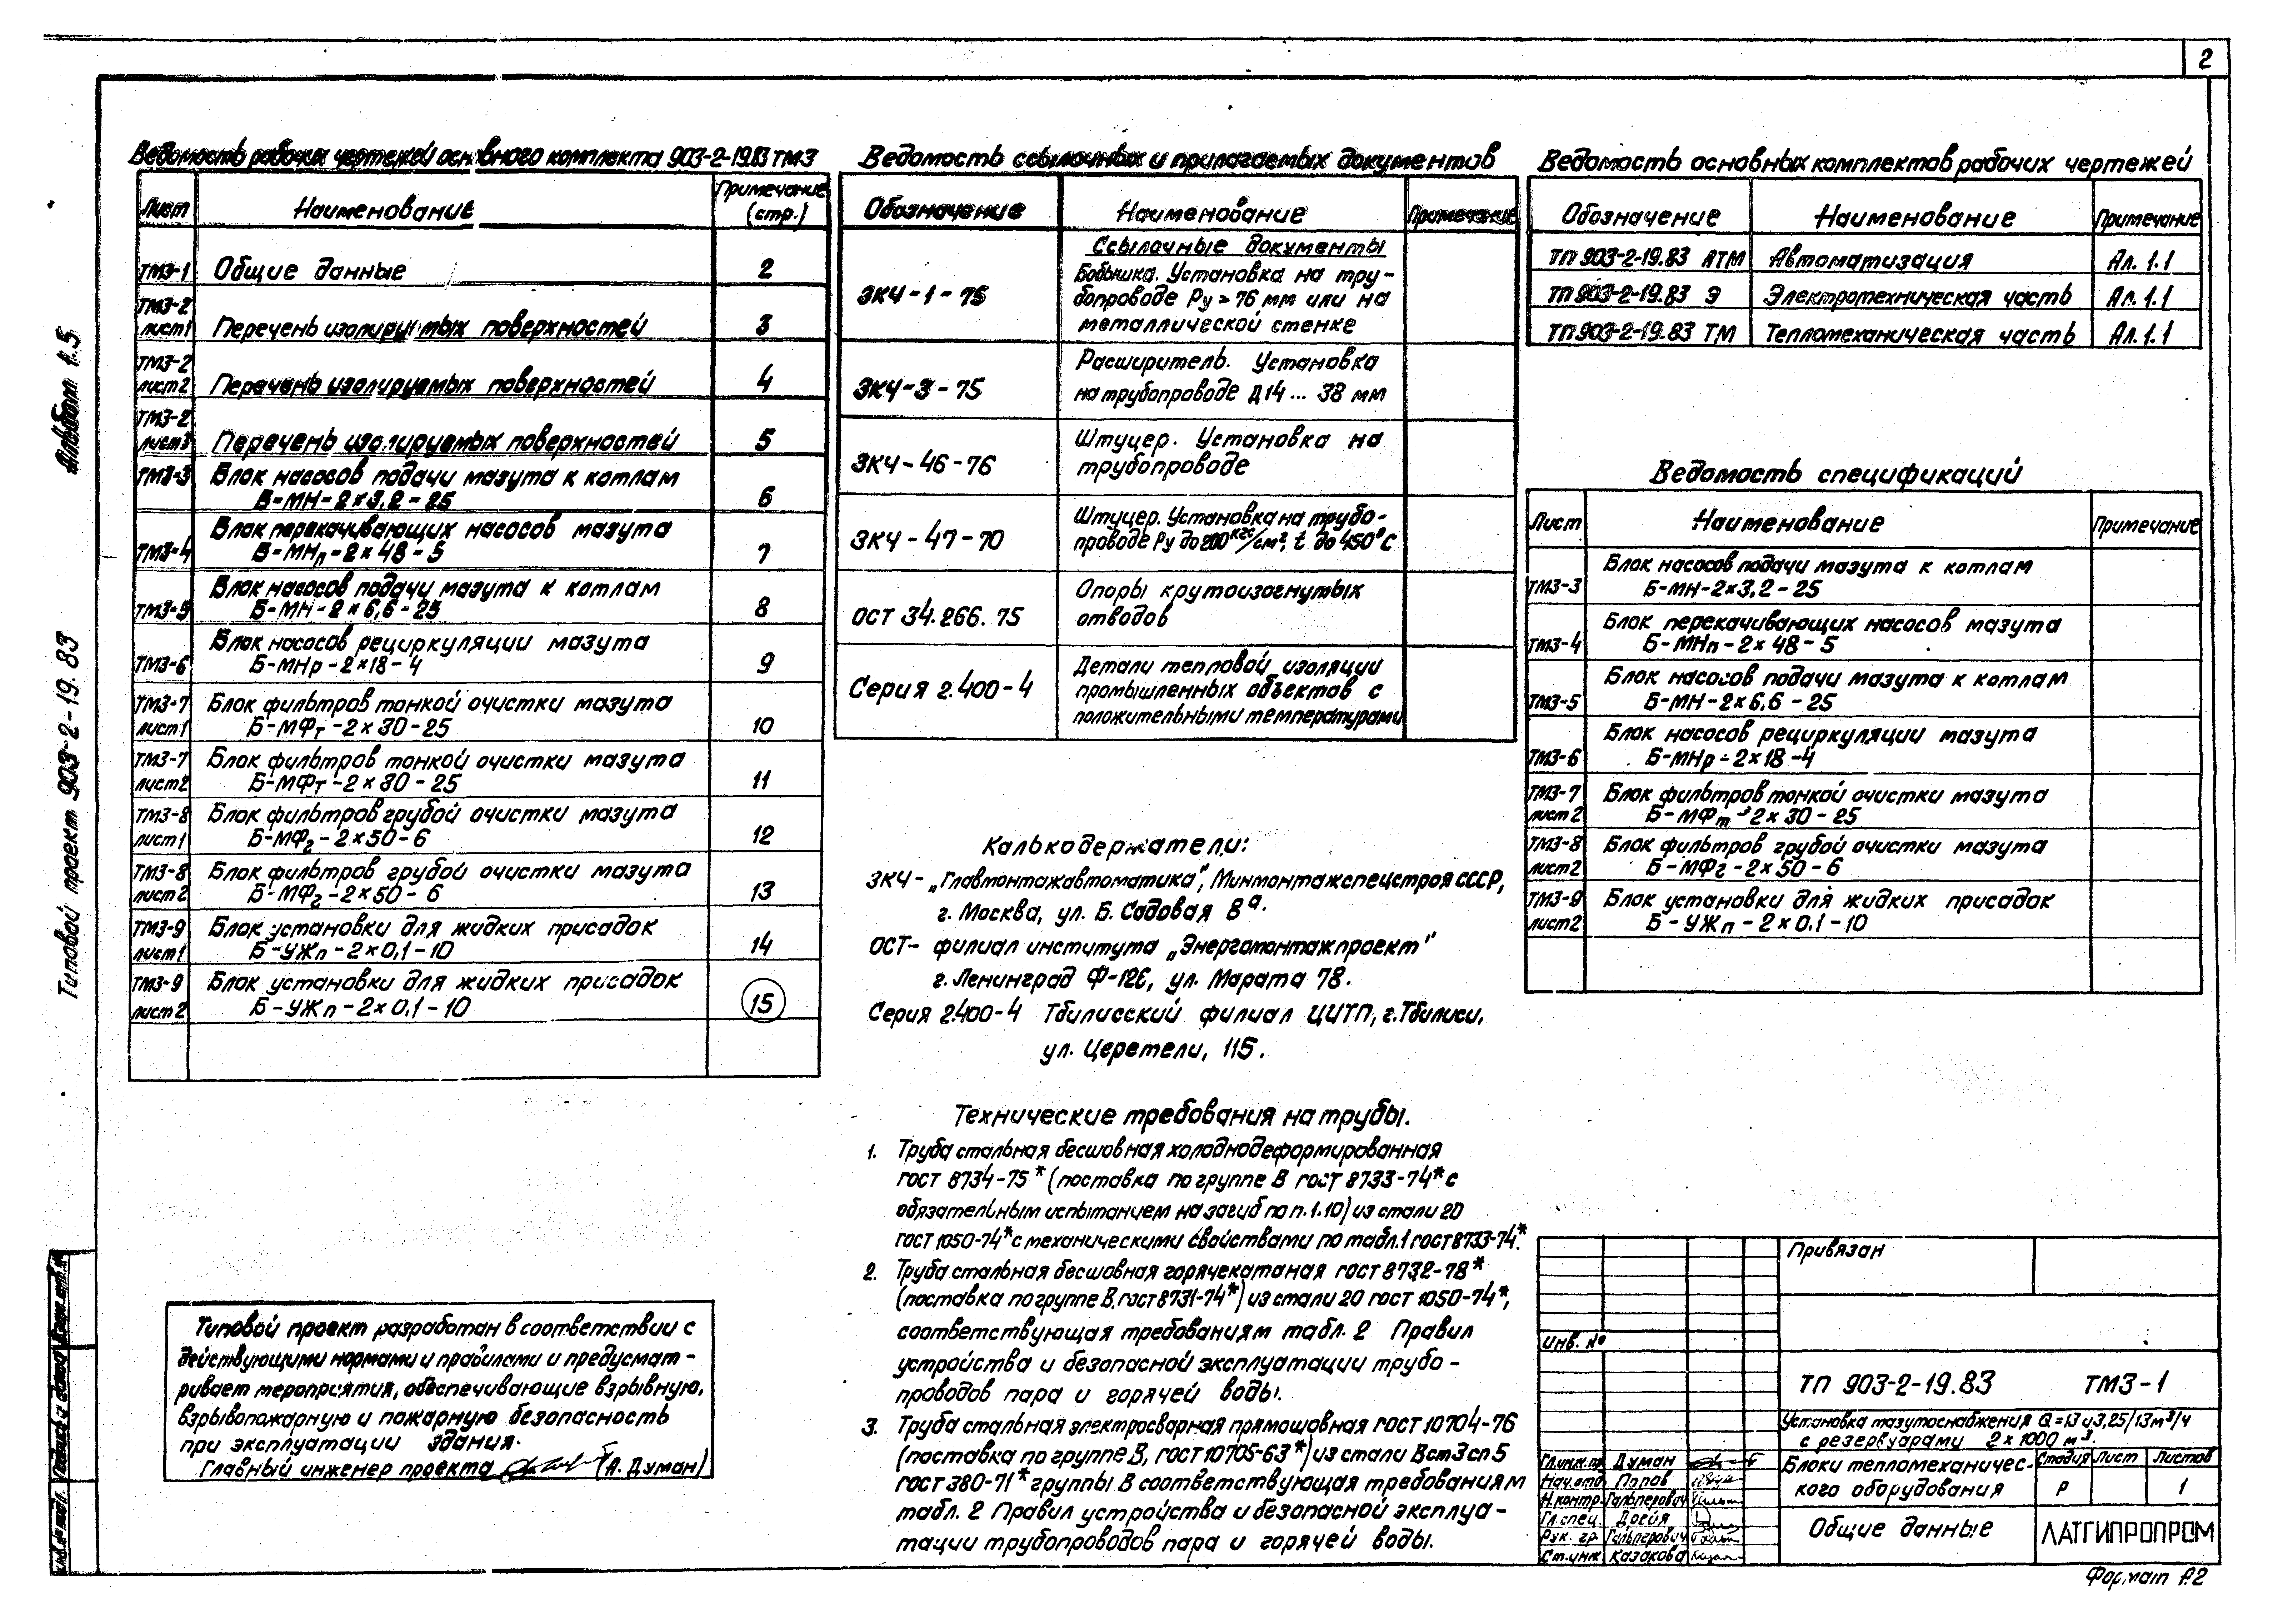 2
Альбом 1.5
Типовой проект 903-2-19.83
Ведомость рабочих чертежей основного комплекта 903-2-19.83 ТМ3
Лист
Наименование
Примечание
(стр.)
ТМ3-1
Общие данные
2
ТМ3-2
лист1
Перечень изолируемых поверхностей
3
ТМ3-2
лист2
Перечень изолируемых поверхностей
4
ТМ3-2
лист3
Перечень изолируемых поверхностей
5
ТМ3-3
Блок насосов подачи мазута к котлам
Б-МН-2×3,2-25
6
ТМ3-4
Блок перекачивающих насосов мазута
Б-МНп-2×48-5
7
ТМ3-5
Блок насосов подачи мазута к котлам
Б-МН-2×6,6-25
8
ТМ3-6
Блок насосов рециркуляции мазута
Б-МНр-2×18-4
9
ТМ3-7
лист1
Блок фильтров тонкой очистки мазута
Б-МФт-2×30-25
10
ТМ3-7
лист2
Блок фильтров тонкой очистки мазута
Б-МФт-2×30-25
11
ТМ3-8
лист1
Блок фильтров грубой очистки мазута
Б-МФг-2×50-6
12
ТМ3-8
лист2
Блок фильтров грубой очистки мазута
Б-МФг-2×50-6
13
ТМ3-9
лист1
Блок установки для жидких присадок
Б-УЖп-2×0,1-10
14
ТМ3-9
лист2
Блок установки для жидких присадок
Б-УЖп-2×0,1-10
15
Типовой проект разработан в соответствии с
действующими нормами и правилами и предусмат-
ривает мероприятия, обеспечивающие взрывную,
взрывопожарную и пожарную безопасность
при эксплуатации здания.
Главный инженер проекта (А. Думан)
Ведомость ссылочных и прилагаемых документов
Обозначение
Наименование
Примечание
Ссылочные документы
ЗКЧ-1-75
Бобышка. Установка на тру-
бопроводе Ру > 76 мм или на
металлической стенке
ЗКЧ-3-75
Расширитель. Установка
на трубопроводе Д14... 38 мм
ЗКЧ-46-76
Штуцер. Установка на
трубопроводе
ЗКЧ-47-70
Штуцер. Установка на трубо-
проводе Ру до 200 кгс/см², t до 450°С
ОСТ 34.266.75
Опоры крутоизогнутых
отводов
Серия 2.400-4
Детали тепловой изоляции
промышленных объектов с
положительными температурами
Калькодержатели:
ЗКЧ- „Главмонтажавтоматика", Минмонтажспецстроя СССР,
г. Москва, ул. Б. Садовая 8а.
ОСТ- филиал института „Энергомонтажпроект"
г. Ленинград Ф-126, ул. Марата 78.
Серия 2.400-4 Тбилисский филиал ЦИТП, г. Тбилиси,
ул. Церетели, 115.
Технические требования на трубы.
1. Труба стальная бесшовная холоднодеформированная
ГОСТ 8734-75* (поставка по группе В ГОСТ 8733-74* с
обязательным испытанием на загиб по п. 1.10) из стали 20
ГОСТ 1050-74* с механическими свойствами по табл.1 ГОСТ 8733-74*.
2. Труба стальная бесшовная горячекатаная ГОСТ 8732-78*
(поставка по группе В, ГОСТ 8731-74*) из стали 20 ГОСТ 1050-74*,
соответствующая требованиям табл. 2 Правил
устройства и безопасной эксплуатации трубо-
проводов пара и горячей воды.
3. Труба стальная электросварная прямошовная ГОСТ 10704-76
(поставка по группе В, ГОСТ 10705-63*) из стали ВСт3сп5
ГОСТ 380-71* группы В соответствующая требованиям
табл. 2 Правил устройства и безопасной эксплуа-
тации трубопроводов пара и горячей воды.
Ведомость основных комплектов рабочих чертежей
Обозначение
Наименование
Примечание
ТП 903-2-19.83 АТМ
Автоматизация
Ал. 1.1
ТП 903-2-19.83 Э
Электротехническая часть
Ал. 1.1
ТП 903-2-19.83 ТМ
Тепломеханическая часть
Ал. 1.1
Ведомость спецификаций
Лист
Наименование
Примечание
ТМ3-3
Блок насосов подачи мазута к котлам
Б-МН-2×3,2-25
ТМ3-4
Блок перекачивающих насосов мазута
Б-МНп-2×48-5
ТМ3-5
Блок насосов подачи мазута к котлам
Б-МН-2×6,6-25
ТМ3-6
Блок насосов рециркуляции мазута
Б-МНр-2×18-4
ТМ3-7
лист2
Блок фильтров тонкой очистки мазута
Б-МФт-2×30-25
ТМ3-8
лист2
Блок фильтров грубой очистки мазута
Б-МФг-2×50-6
ТМ3-9
лист2
Блок установки для жидких присадок
Б-УЖп-2×0,1-10
Привязан
Инв. №
ТП 903-2-19.83 ТМ3-1
Установка мазутоснабжения Q=13 и 3,25/13 м³/ч
с резервуарами 2×1000 м³.
Гл.инж.пр. Думан
Нач.отд. Попов
Н.контр. Гальперович
Гл.спец. Дрейя
Рук. гр. Гальперович
Ст.инж. Казакова
Блоки тепломеханичес-
кого оборудования
Стадия Лист Листов
Р 1
Общие данные
ЛАТГИПРОПРОМ
Формат А2
Инв.№ подл. Подпись и дата Взам.инв.№